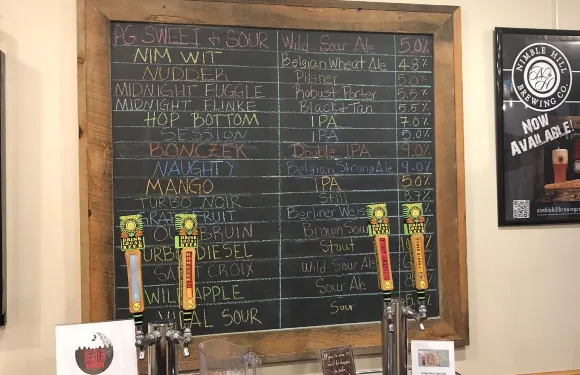 PG SWEET & SOUR Wild Sour Ale 5.0%
NIM WIT Belgian Wheat Ale 4.8%
NUDDER Pilsner 5.0%
MIDNIGHT FUGGLE Robust Porter 5.5%
MIDNIGHT FLINKE Black & Tan 5.5%
HOP BOTTOM IPA 7.0%
SESSION IPA 5.0%
BONCZEK Double IPA 9.0%
NAUGHTY Belgian Strong Ale 9.0%
MANGO IPA 5.0%
TURBO NOIR
Berliner
BRUIN Brown Sour
DIESEL Stout
CROIX Wild Sour Ale
WILD APPLE Sour Ale
SOUR Sour
NIMBLE HILL
BREWING CO.
NOW
AVAILABLE!